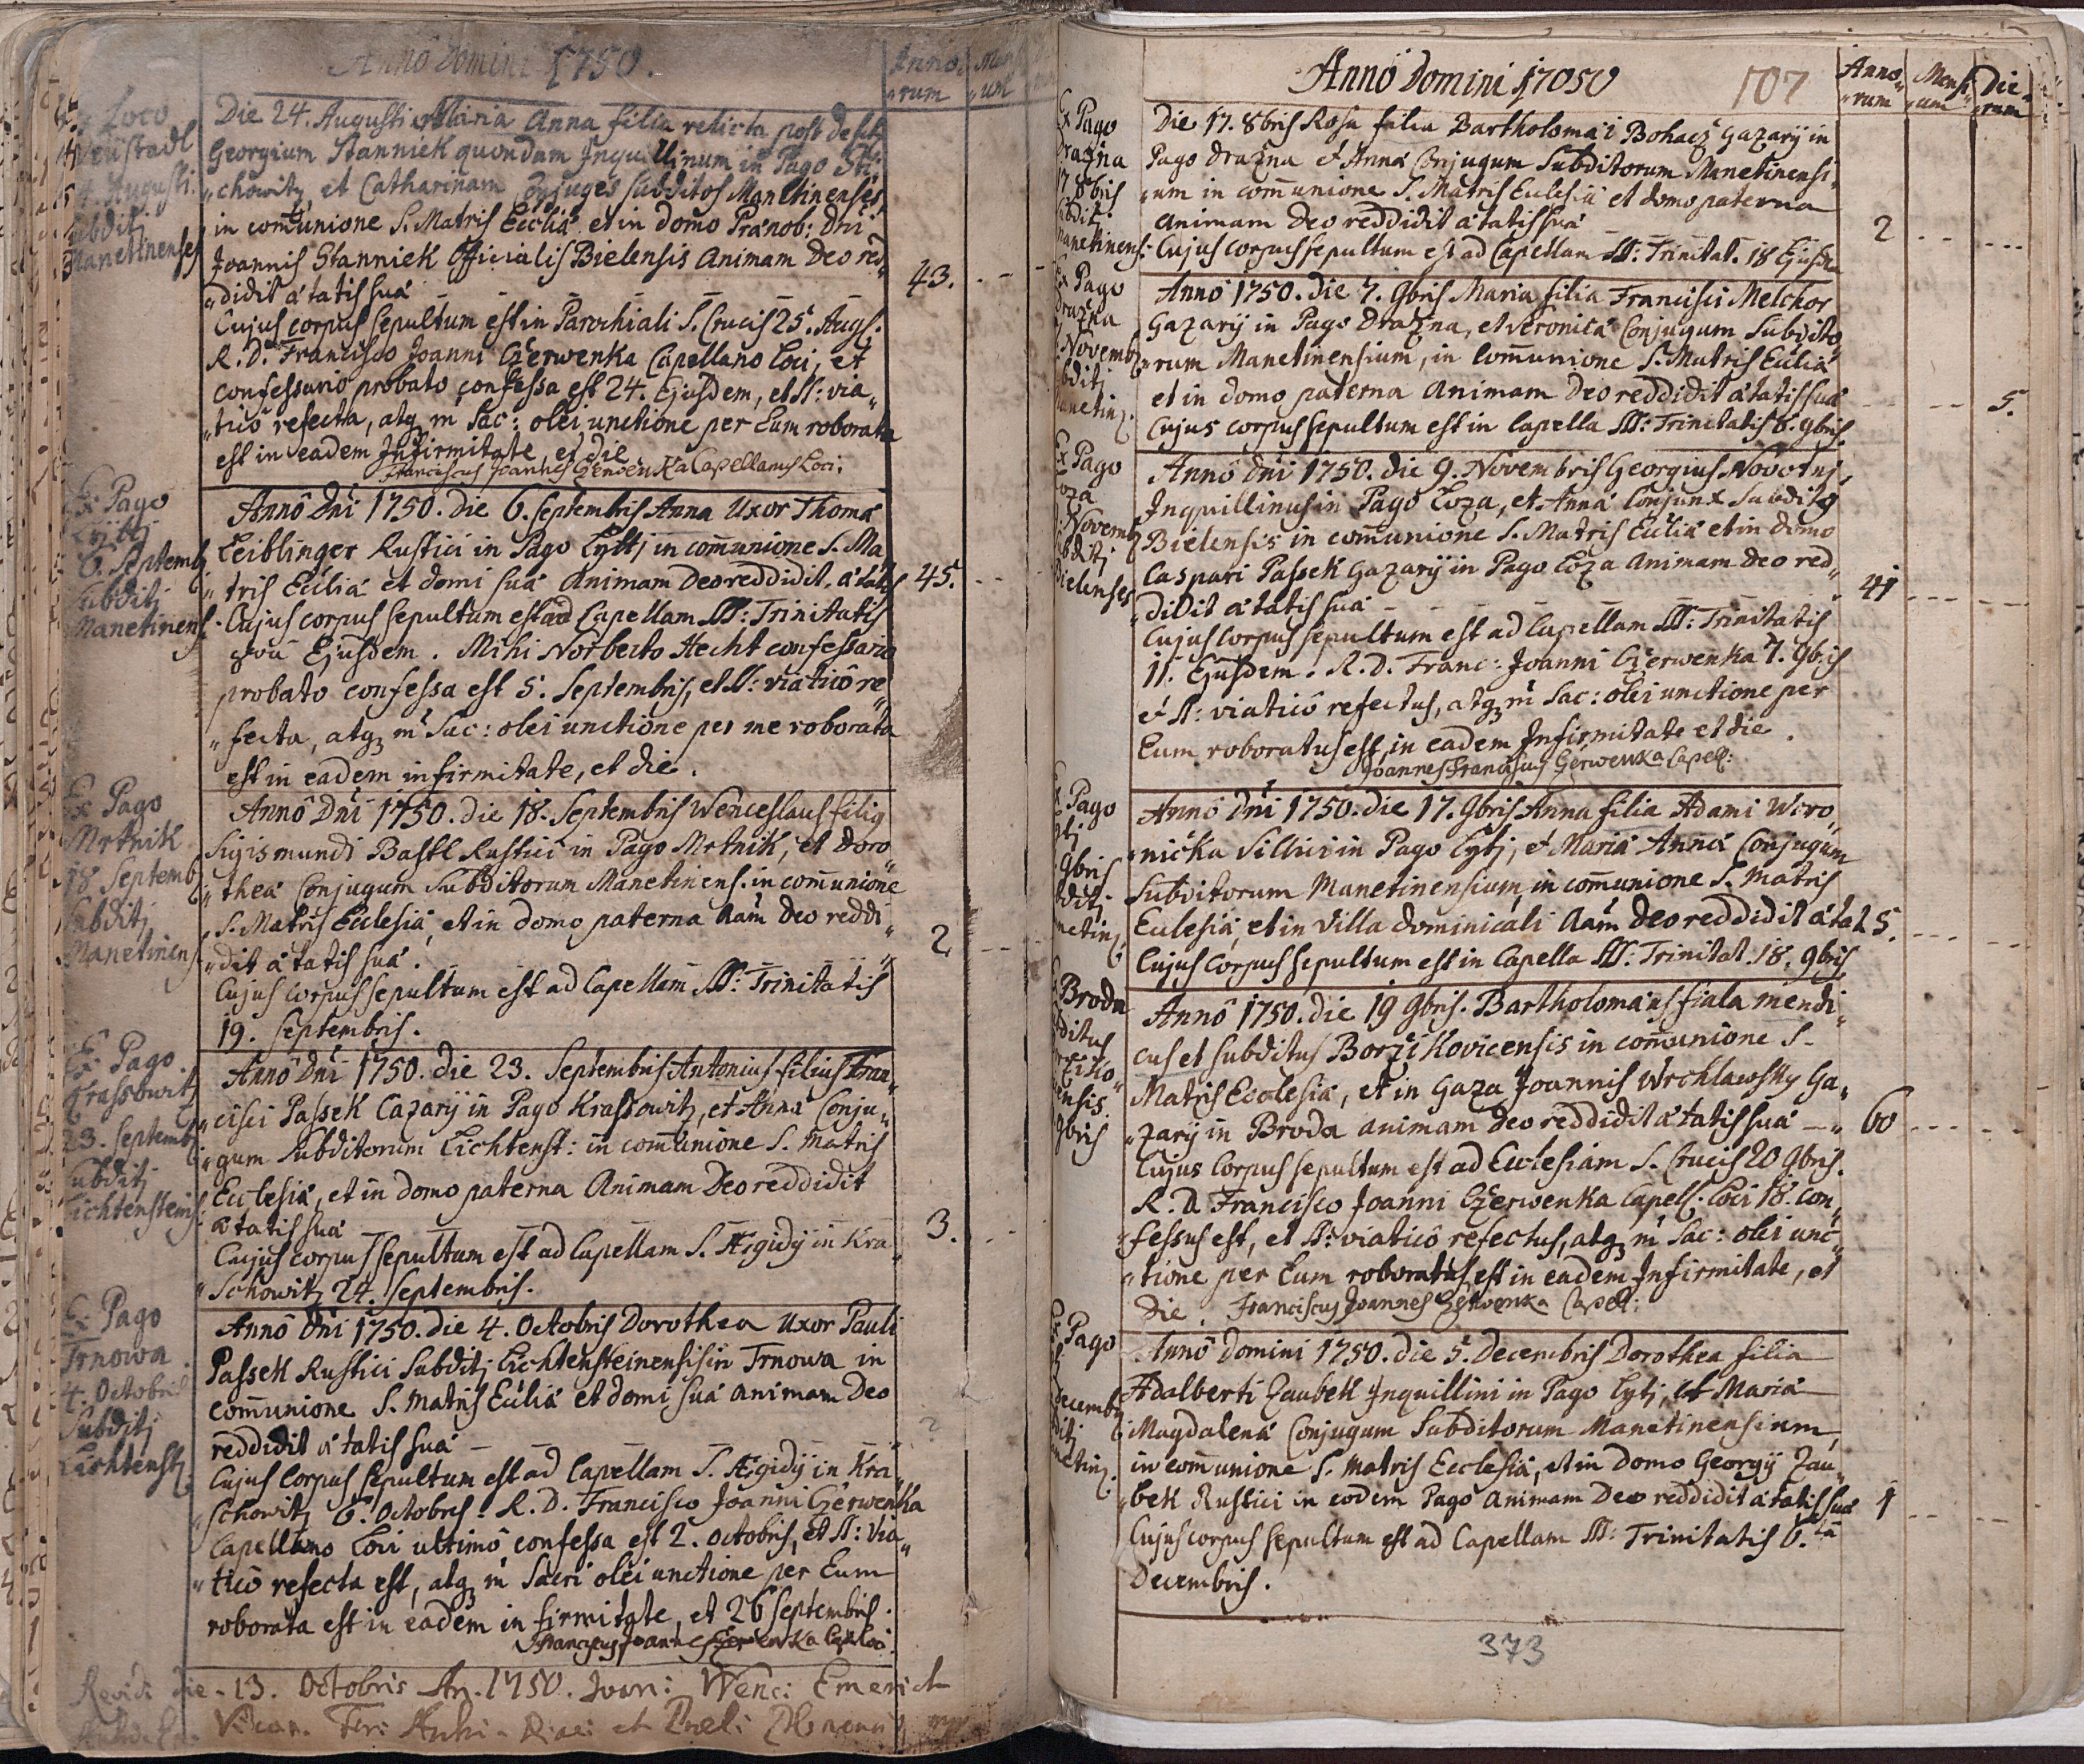 Anno Domini 1750.
Anno„
„rum
Loco
Neustadl
Augusti.
Subditj
Manetinenses
Die 24. Augusti Maria Anna filia relicta post def:
Georgium Stanniek quondam Inquillinum in Pago Sti„
„chowitz, et Catharinam Conjuges subditos Manetinenses
in com̄unione S. Matris Eccliâ et in domo Prænob: Dni
Joannis Stanniek Officialis Bielensis Animam Deo red„
„didit ætatis suæ 43.
Cujus corpus sepultum est in Parochiali S. Crucis 25. Augs.
R. D. Francisco Joanni Czerwenka Capellano Loci, et
confessario probato confessa est 24. Ejusdem, et SS: via„
„ticô refecta, atq m̄ Sac: olei unctione per Eum roborata
est in eadem Infirmitate, et die
Franciscus Joannes Czerwenka Capellanus Loci.
Ex Pago
Lyttj
6. Septemb
Subditj
Manetinens.
Annô Dni 1750. die 6. Septembris Anna Uxor Thomæ
Leiblinger Rustici in Pago Lyttj in com̄unione S. Ma
„tris Eccliæ et domi suæ Animam Deo reddidit, ætatis 45.
Cujus corpus sepultum est ad Capellam SS: Trinitatis
8va Ejusdem. Mihi Norberto Hecht confessario
probato confessa est 5. Septembris, et SS: viaticô re„
„fecta, atq m̄ Sac: olei unctione per me roborata
est in eadem infirmitate, et die.
Ex Pago
Mrtnik
18 Septemb
Subditj
Manetinens
Annô Dni 1750. die 18. Septembris Wenceslaus filig
Sigismundi Bastl Rustici in Pago Mrtnik, et Doro„
„theæ Conjugum Subditorum Manetinens. in com̄unione
S. Matris Ecclesiæ, et in domo paterna Aam̄ Deo reddi„
„dit ætatis suæ. 2
Cujus corpus sepultum est ad Capellam SS: Trinitatis
19. Septembris.
Ex Pago
Krassowitz
23. Septemb.
Subditj
Lichtensteins
Annô Dni 1750. die 23. Septembris Antonius filius Fran„
„cisci Passek Cazarij in Pago Krassowitz, et Annæ Conju„
„gum Subditorum Lichtenst: in com̄unione S. Matris
Ecclesiæ, et in domo paterna Animam Deo reddidit
ætatis suæ 3.
Cujus corpus sepultum est ad Capellam S. Ægidij in Kra
„schowitz 24. Septembris.
Ex Pago
Trnowa
4. Octobris
Subditj
Lichtenstz
Annô Dni 1750. die 4. Octobris Dorothea Uxor Pauli
Passek Rustici Subditj Lichtensteinensis in Trnowa in
com̄unione S. Matris Eccliæ et domi suæ animam Deo
reddidit ætatis suæ
Cujus Corpus sepultum est ad Capellam S. Ægidij in Kra„
„schowitz 6. Octobris. R. D. Francisco Joanni Czerwenka
Capellano Loci ultimô confessa est 2. Octobris, et SS: via„
„ticô refecta est, atq m̄ Sacri olei unctione per Eum
roborata est in eadem infirmitate, et 26 Septembris.
Revidi die 13. Octobris An. 1750. Joan: Wenc: Emerich
Anno Domini 17050
107
Anno„
„rum
Mensi„
„um
Die„
„rum
Ex Pago
Drazna
17 8bris
Subditj
Manetinens:
Die 17. 8bris Rosa filia Bartholomæi Bohacz Gazarij in
Pago Drazna et Annæ Conjugum Subditorum Manetinensi„
„um in com̄unione S. Matris Ecclesiæ et domo paterna
Animam Deo reddidit ætatis suæ 2
Cujus corpus sepultum est ad Capellam SS: Trinitat. 18 Ejusdem
Ex Pago
Drazna
7. Novemb
Subditj
Manetinz.
Annô 1750. die 7. 9bris Maria filia Francisci Melchor
Gazarij in Pago Drazna, et Veronicæ Conjugum Subdito„
„rum Manetinensium, in Com̄unione S. Matris Eccliæ
et in domo paterna Animam Deo reddidit ætatis suæ 5.
Cujus corpus sepultum est in Capella SS: Trinitatis 8. 9bris.
Ex Pago
Loza
Novemb
Subditj
Bielenses
Annô Dni 1750. die 9. Novembris Georgius Novotnj,
Inquillinus in Pago Loza, et Anna Conjunx Subditg
Bielensis in com̄unione S. Matris Eccliæ et in domo
Caspari Passek Gazarij in Pago Loza Animam Deo red„
„didit ætatis suæ 41
Cujus Corpus sepultum est ad Capellam SS: Trinitatis
11. Ejusdem. R. D. Franc: Joanni Czerwenka 7. 9bris
et SS: viaticô refectus, atq m̄ Sac: olei unctione per
Eum roboratus est in eadem Infirmitate et die.
Joannes Franciscus Czerwenka Capell:
Ex Pago
9bris
Annô Dni 1750. die 17. 9bris Anna filia Adami Woro„
„niczka Villici in Pago Lytj, et Mariæ Annæ Conjugum
Subditorum Manetinensium, in com̄unione S. Matris
Ecclesiæ, et in Villa dominicali Aam̄ Deo reddidit ætat. 5.
Cujus Corpus sepultum est in Capella SS: Trinitat. 18. 9bris
Broda
Annô 1750. die 19 9bris. Bartholomæus Fiala mendi„
cus et subditus Borzikovicensis in com̄unione S.
Matris Ecclesiæ, et in Gaza Joannis Wrchlawsky Ga„
„zarij in Broda animam Deo reddidit ætatis suæ 60
Cujus Corpus sepultum est ad Ecclesiam S. Crucis 20 9bris.
R. D. Francisco Joanni Czerwenka Capell. Loci 18. Con„
„fessus est, et SS: viaticô refectus, atq m̄ Sac: olei unc„
„tione per Eum roboratus est in eadem Infirmitate, et
Die. Franciscus Joannes Czerwenka Capell:
Ex Pago
Decemb
Anno Domini 1750. die 5. Decembris Dorothea filia
Adalberti Zaubek Inquillini in Pago Lytj, et Mariæ
Magdalenæ Conjugum Subditorum Manetinensium,
in com̄unione S. Matris Ecclesiæ, et in Domo Georgij Zau„
„bek Rustici in eodem Pago Animam Deo reddidit ætatis suæ 1
Cujus corpus sepultum est ad Capellam SS: Trinitatis 6.ta
Decembris.
373